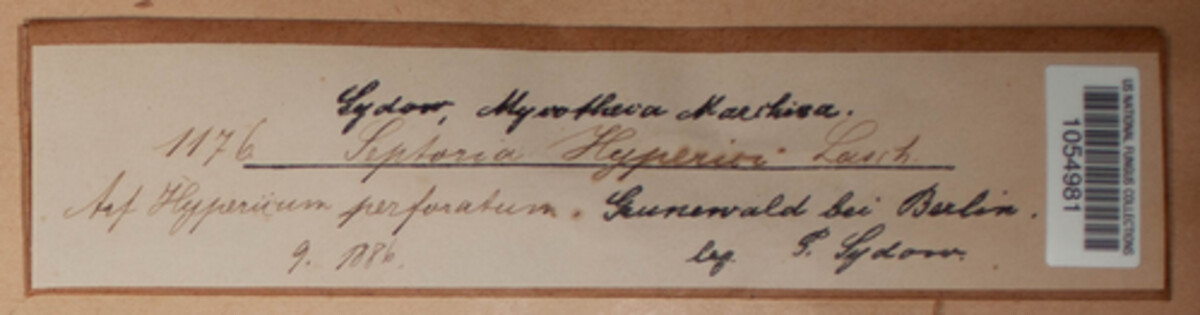 Sydow, Mycotheca Marchica.
1176 Septoria Hyperici Lasch.
Auf Hypericum perforatum. Grunewald bei Berlin.
9. 1886. leg. P. Sydow.
US NATIONAL FUNGUS COLLECTIONS
1054981